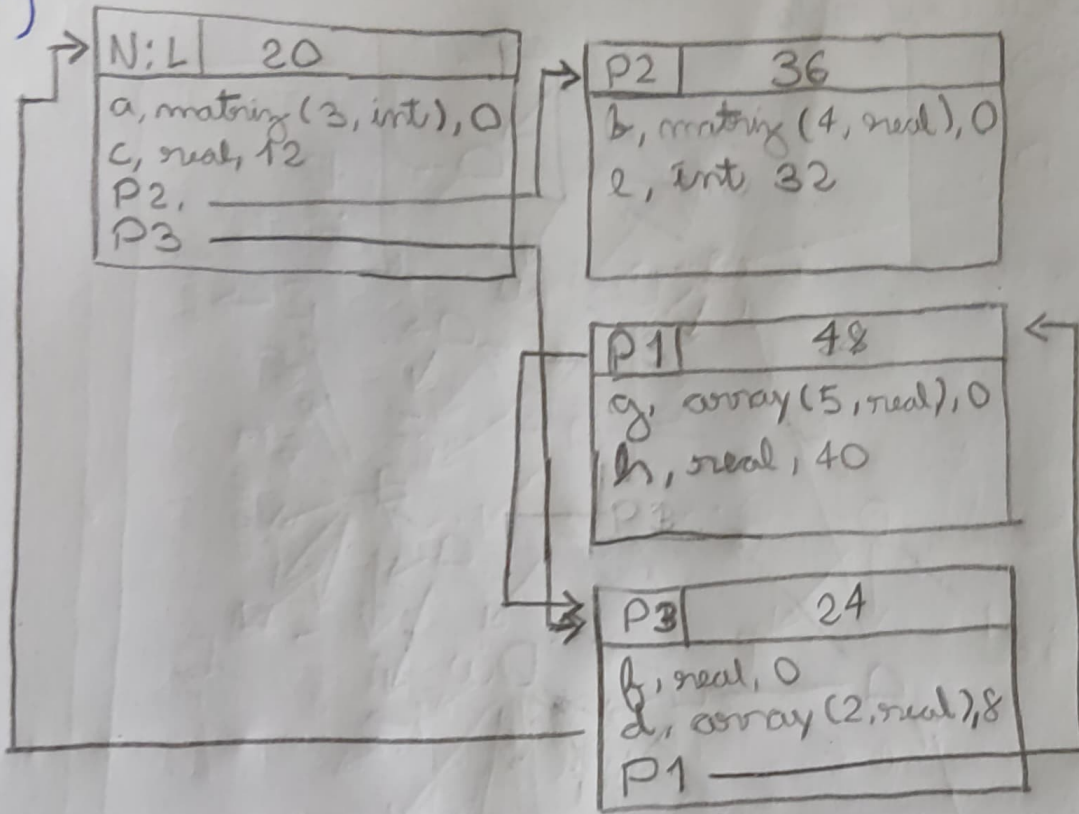 N:L 20
a, matrix (3, int), 0
c, real, 12
P2.
P3
P2 36
b, matrix (4, real), 0
e, int 32
P1 48
g, array (5, real), 0
h, real, 40
P1
P3 24
f, real, 0
d, array (2, real), 8
P1